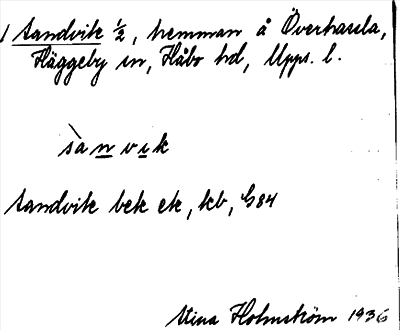 Sandvik ½, hemman å Överhassla,
Häggeby sn, Håbo hd, Upps. l.
sànvik
Sandvik bek ek, kb, G84
Stina Holmström 1936